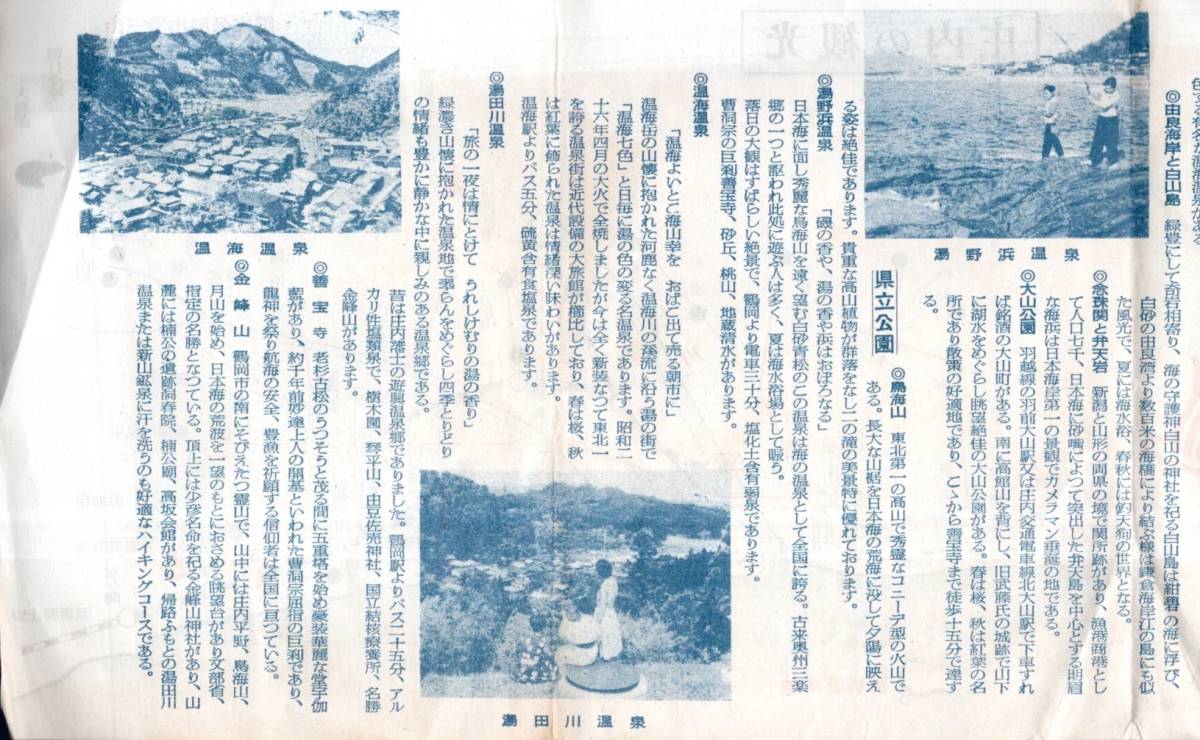 色する有名な温海温泉がある。
◎由良海岸と白山島 緑豊にして奇岩相寄り、海の守護神白山の神社を祀る白山島は紺碧の海に浮び、
白砂の由良湾より数百米の海橋により結ぶ様は裏日本海岸江の島にも似
た風光で、夏には海水浴、春秋には釣天狗の世界となる。
◎念珠関と弁天岩 新潟と山形の両県の境で関所跡があり、漁港商港とし
て人口七千、日本海に砂嘴によつて突出した弁天島を中心とする明眉
な海浜は日本海岸第一の景観でカメラマン垂涎の地である。
◎大山公園 羽越線の羽前大山駅又は庄内交通電車線北大山駅で下車すれ
ば銘酒の大山町がある。南に高館山を背にし、旧武藤氏の城跡で山下
に湖水をめぐらし眺望絶佳の大山公園がある。春は桜、秋は紅葉の名
所であり散策の好適地であり、こゝから善宝寺まで徒歩十五分で達す
る。
湯野浜温泉
県立公園
◎鳥海山 東北第一の高山で秀霊なコニーデ型の火山で
ある。長大な山裾を日本海の荒海に没して夕陽に映え
る姿は絶佳であります。貴重な高山植物が群落をなし二の滝の美景特に優れております。
◎湯野浜温泉 「磯の香や、湯の香や浜はおぼろなる」
日本海に面し秀麗な鳥海山を遠く望む白砂青松のこの温泉は海の温泉として全国に誇る。古来奥州三楽
郷の一つと謳われ此処に遊ぶ人は多く、夏は海水浴場として賑う。
落日の大観はすばらしい絶景で、鶴岡より電車三十分、塩化土含有弱泉であります。
曹洞宗の巨刹善宝寺、砂丘、桃山、地蔵清水があります。
◎温海温泉
「温海よいとこ海山幸を おばこ出て売る朝市に」
温海岳の山懐に抱かれた河鹿なく温海川の溪流に沿う湯の街で
「温海七色」と日毎に湯の色の変る名温泉であります。昭和二
十六年四月の大火で全焼しましたが今は全く新装なつて東北一
を誇る温泉街は近代設備の大旅館が櫛比しており、春は桜、秋
は紅葉に飾られた温泉は情緒深い味わいがあります。
温海駅よりバス五分、硫黄含有食塩泉であります。
◎湯田川温泉
「旅の一夜は情にとけて うれしけむりの湯の香り」
緑濃き山懐に抱かれた温泉地で郭らんをめぐらし四季とりどり
の情緒も豊かに静かな中に親しみのある温泉郷である。
昔は庄内藩士の遊興温泉郷でありました。鶴岡駅よりバス二十五分、アル
カリ性塩類泉で、樹木園、琴平山、由豆佐売神社、国立結核療養所、名勝
金峰山があります。
湯田川温泉
温海温泉
◎善宝寺 老杉古松のうつそうと茂る間に五重塔を始め豪装華麗な堂宇伽
藍があり、約千年前妙達上人の開基といわれた曹洞宗屈指の巨刹であり、
龍神を祭り航海の安全、豊漁を祈願する信仰者は全国に亘つている。
◎金峰山 鶴岡市の南にそびえたつ霊山で、山中には庄内平野、鳥海山、
月山を始め、日本海の荒波を一望のもとにおさめる眺望台があり文部省、
指定の名勝となつている。頂上には少彦名命を祀る金峰山神社があり、山
麓には楠公の遺跡洞春院、楠公廟、高坂会館があり、帰路ふもとの湯田川
温泉または新山鉱泉に汗を洗うのも好適なハイキングコースである。